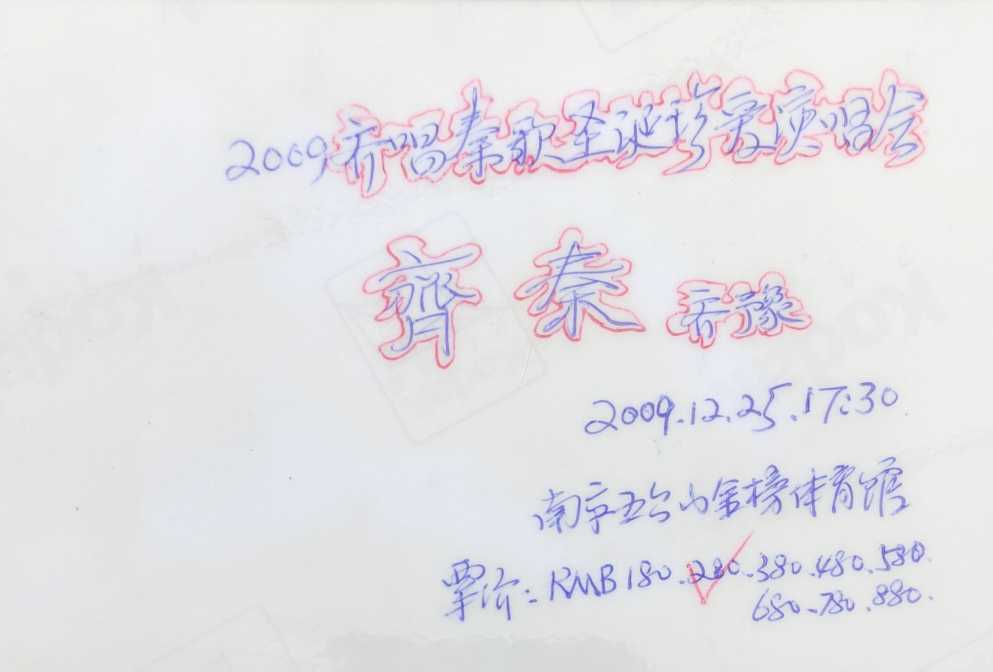 2009齐唱秦歌圣诞珍爱演唱会
齊秦 齐豫
2009.12.25.17:30
南京五台山金榜体育馆
票价:RMB180.280.380.480.580.
680.780.880.